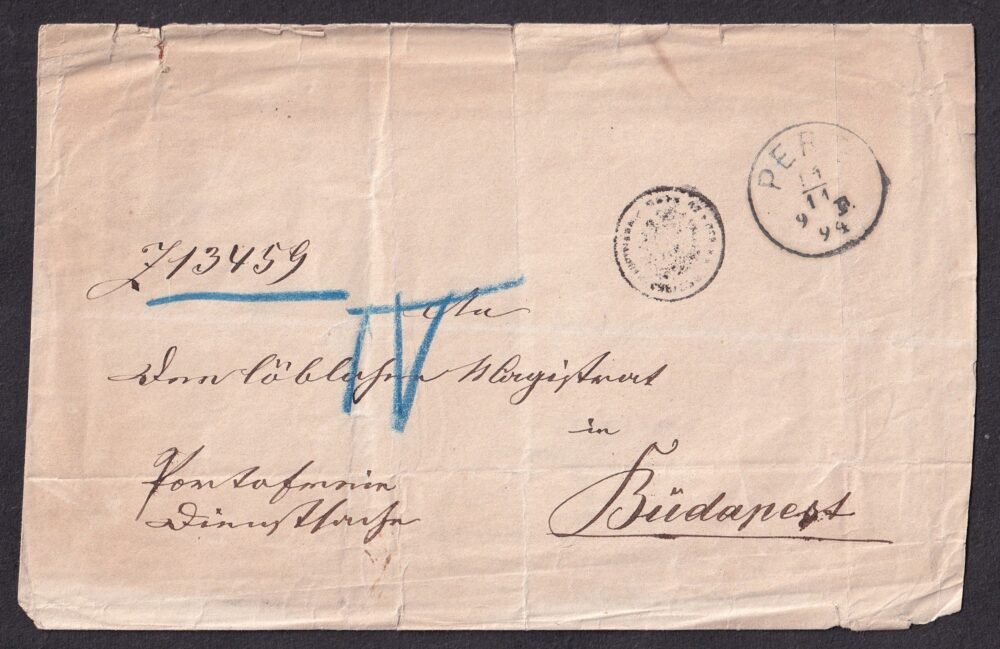 Z 13459
IV
An
Den löblichen Magistrat
in
Budapest
Portofreie
Dienstsache
11
11
9 F.
94